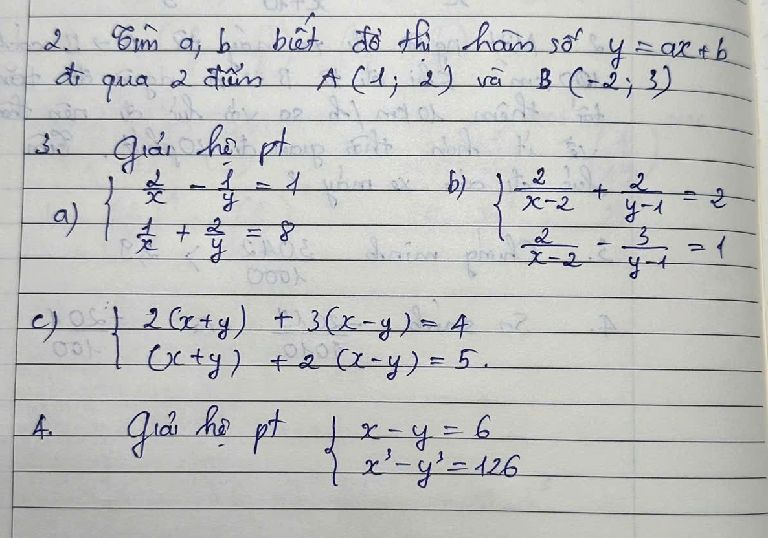 2. Tìm a, b biết đồ thị hàm số y = ax + b
đi qua 2 điểm A (1; 2) và B (-2; 3)
3. Giải hệ pt
a) { 2/x - 1/y = 1
1/x + 2/y = 8
b) { 2/(x-2) + 2/(y-1) = 2
2/(x-2) - 3/(y-1) = 1
c) { 2(x+y) + 3(x-y) = 4
(x+y) + 2(x-y) = 5.
4. Giải hệ pt { x - y = 6
x³ - y³ = 126